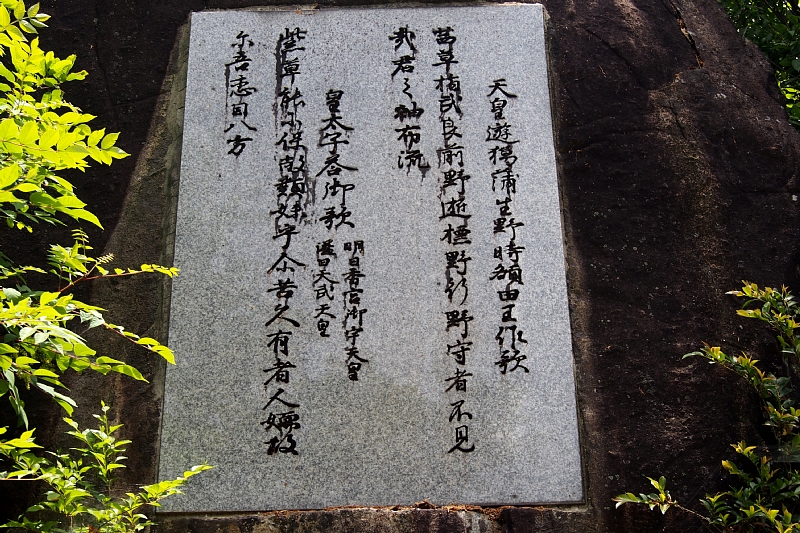 天皇遊猟蒲生野時額田王作歌
茜草指武良前野逝標野行野守者不見
哉君之袖布流
皇太子答御歌 明日香宮御宇天皇
謚曰天武天皇
紫草能尓保敝類妹乎尓苦久有者人嬬故
尓吾恋目八方